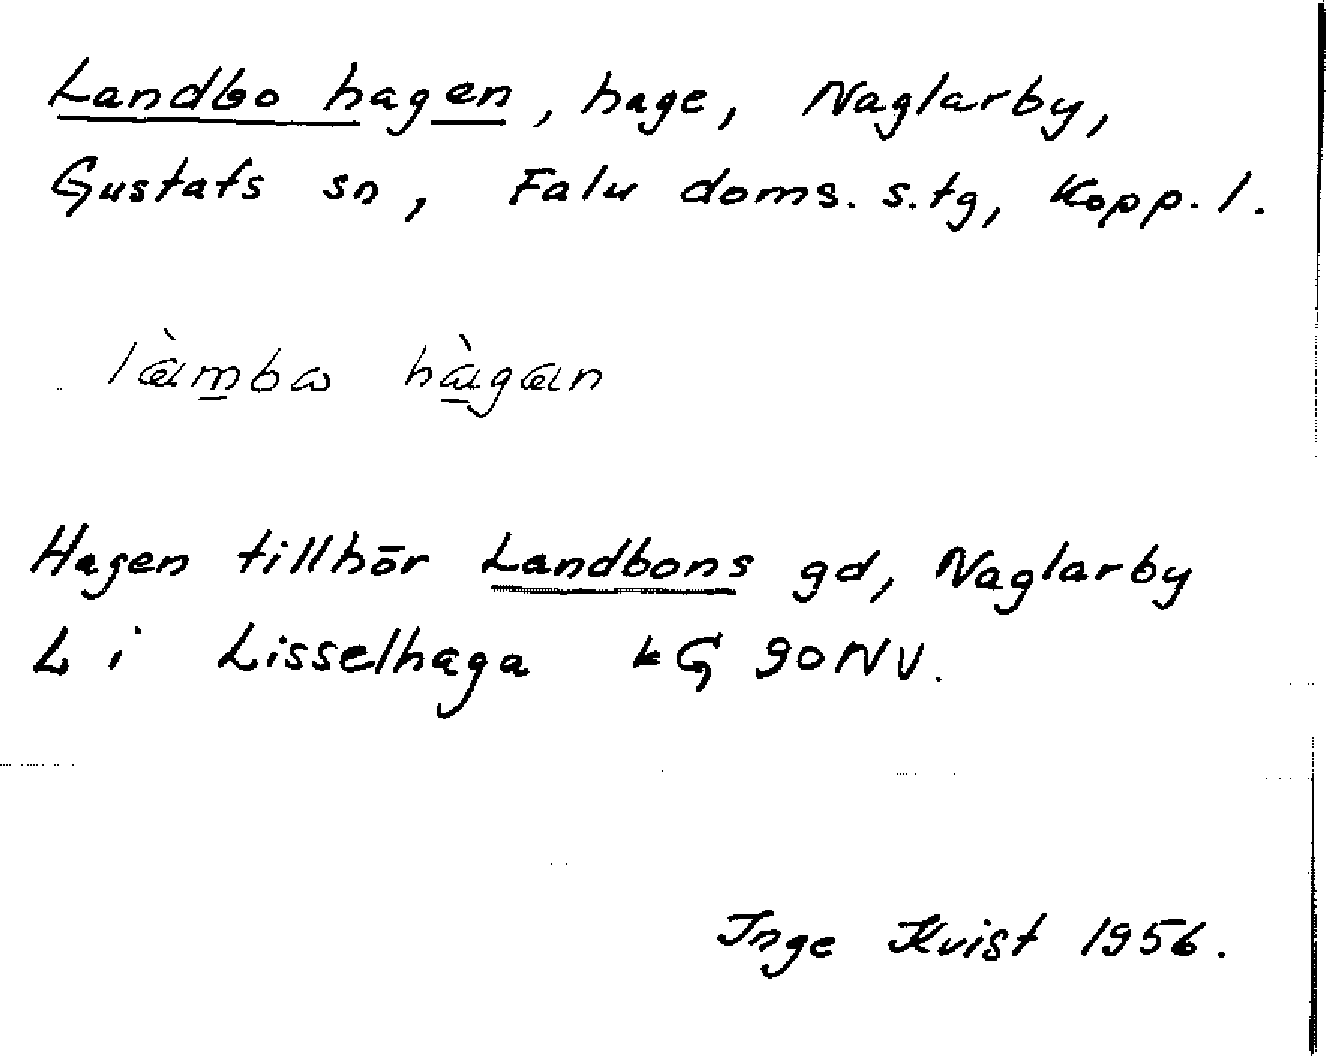 Landbo hagen, hage, Naglarby,
Gustafs sn, Falu doms. s. tg, Kopp. l.
làmba hàgan
Hagen tillhör Landbons gd, Naglarby
L i Lisselhaga kG 90 NV.
Inge Kvist 1956.